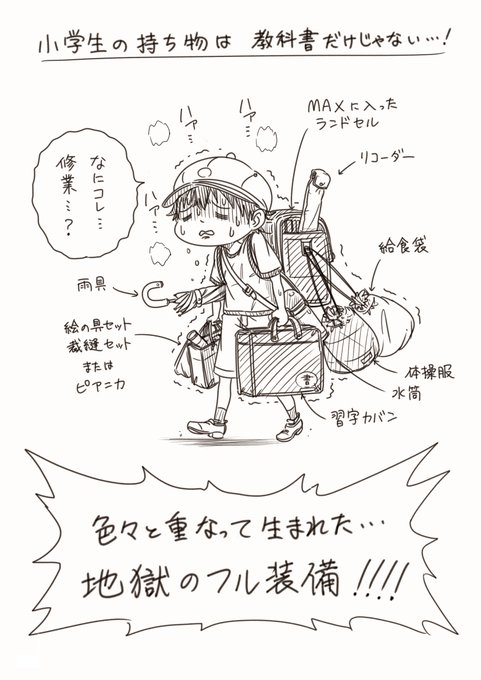 小学生の持ち物は 教科書だけじゃない…!
MAXに入った
ランドセル
リコーダー
給食袋
ハァ…
ハァ…
ハァ…
なにコレ…
修業…?
雨具
絵の具セット
裁縫セット
または
ピアニカ
体操服
水筒
書
習字カバン
色々と重なって生まれた…
地獄のフル装備!!!!